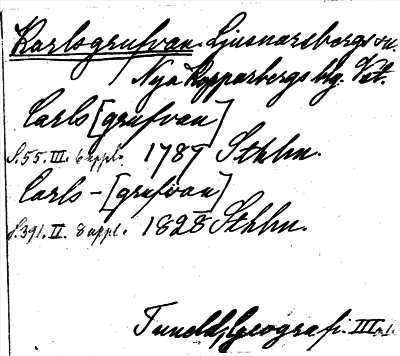 Karlsgrufvan. Ljusnarsbergs sn.
Nya Kopparbergs blg. Vstm.
Carls [grufvan]
S. 55. III. 6 uppl. 1787 Sthlm.
Carls-[grufvan]
S. 391. II. 8 uppl. 1828 Sthlm.
Tuneld, Geografi. III